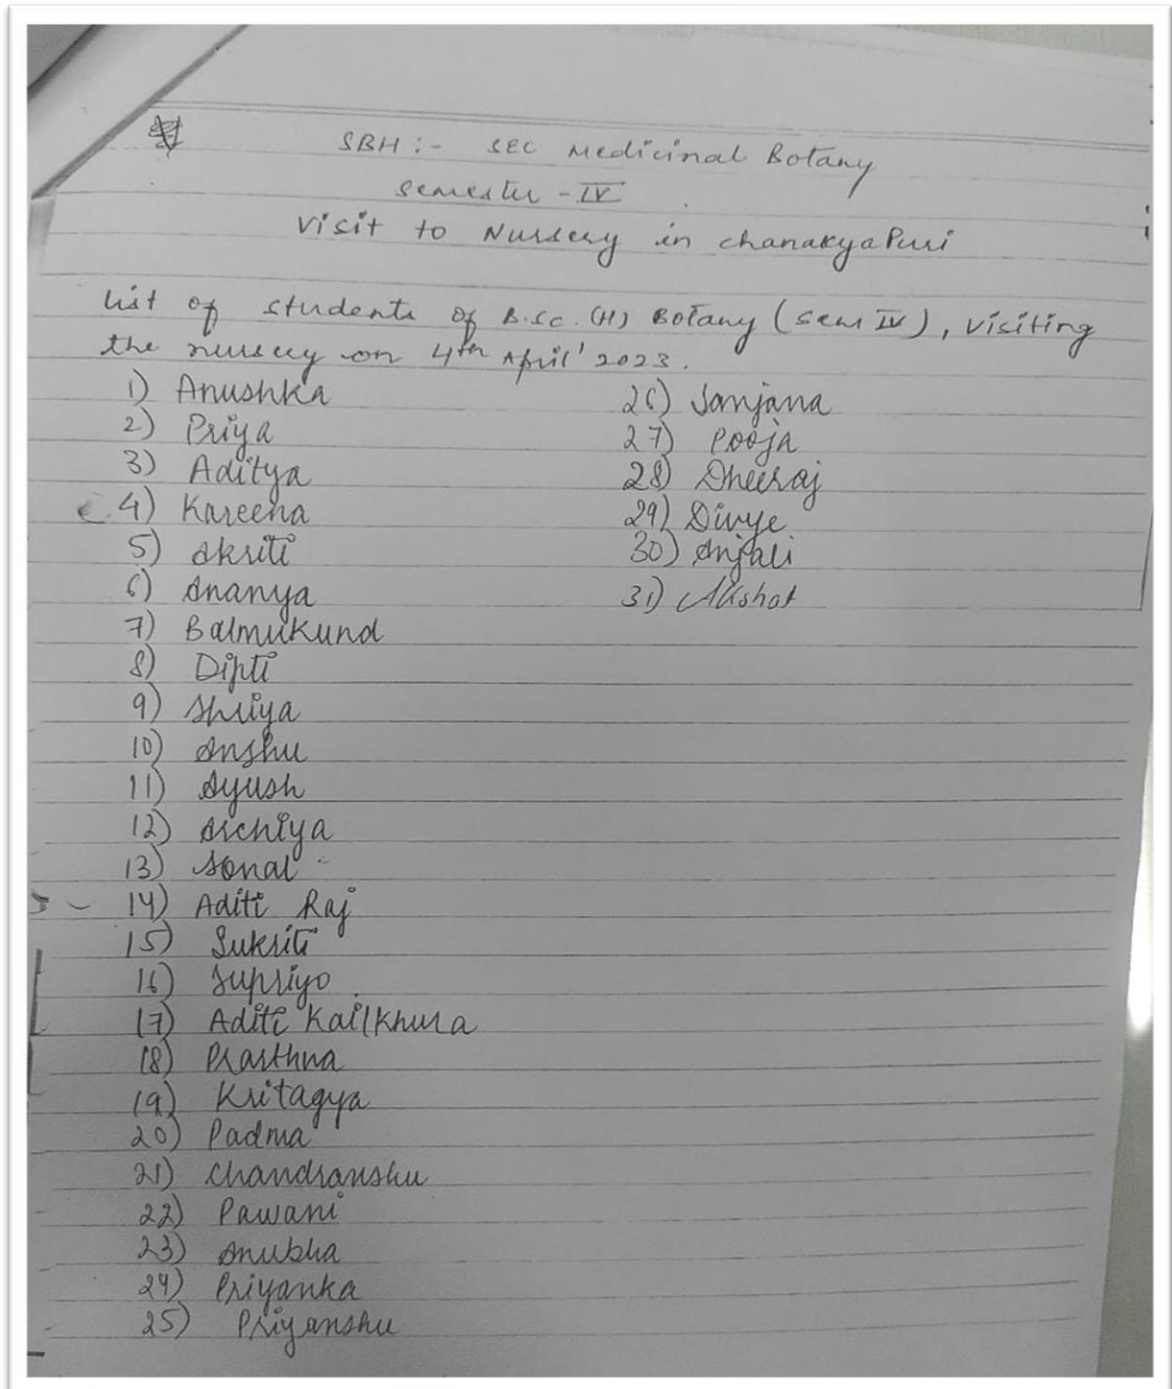 SBH :- SEC Medicinal Botany
Semester - IV
Visit to Nursery in Chanakya Puri
List of students of B.Sc. (H) Botany (Sem IV), visiting
the nursery on 4th April' 2023.
1) Anushka
2) Priya
3) Aditya
4) Kareena
5) Akriti
6) Ananya
7) Balmukund
8) Dipti
9) Shriya
10) Anshu
11) Ayush
12) Archiya
13) Sonal
14) Aditi Raj
15) Sukriti
16) Supriyo
17) Aditi Kailkhura
18) Prarthna
19) Kritagya
20) Padma
21) Chandranshu
22) Pawani
23) Anubha
24) Priyanka
25) Priyanshu
26) Sanjana
27) Pooja
28) Dheeraj
29) Divye
30) Anjali
31) Akshat